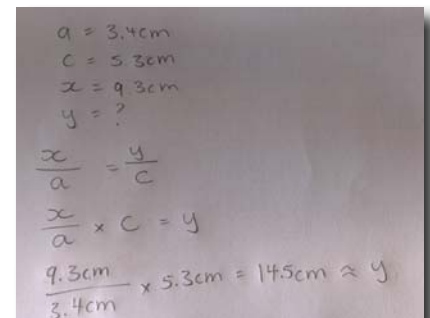 a = 3.4cm
c = 5.3cm
x = 9.3cm
y = ?
x/a = y/c
x/a × c = y
9.3cm/3.4cm × 5.3cm = 14.5cm ≈ y